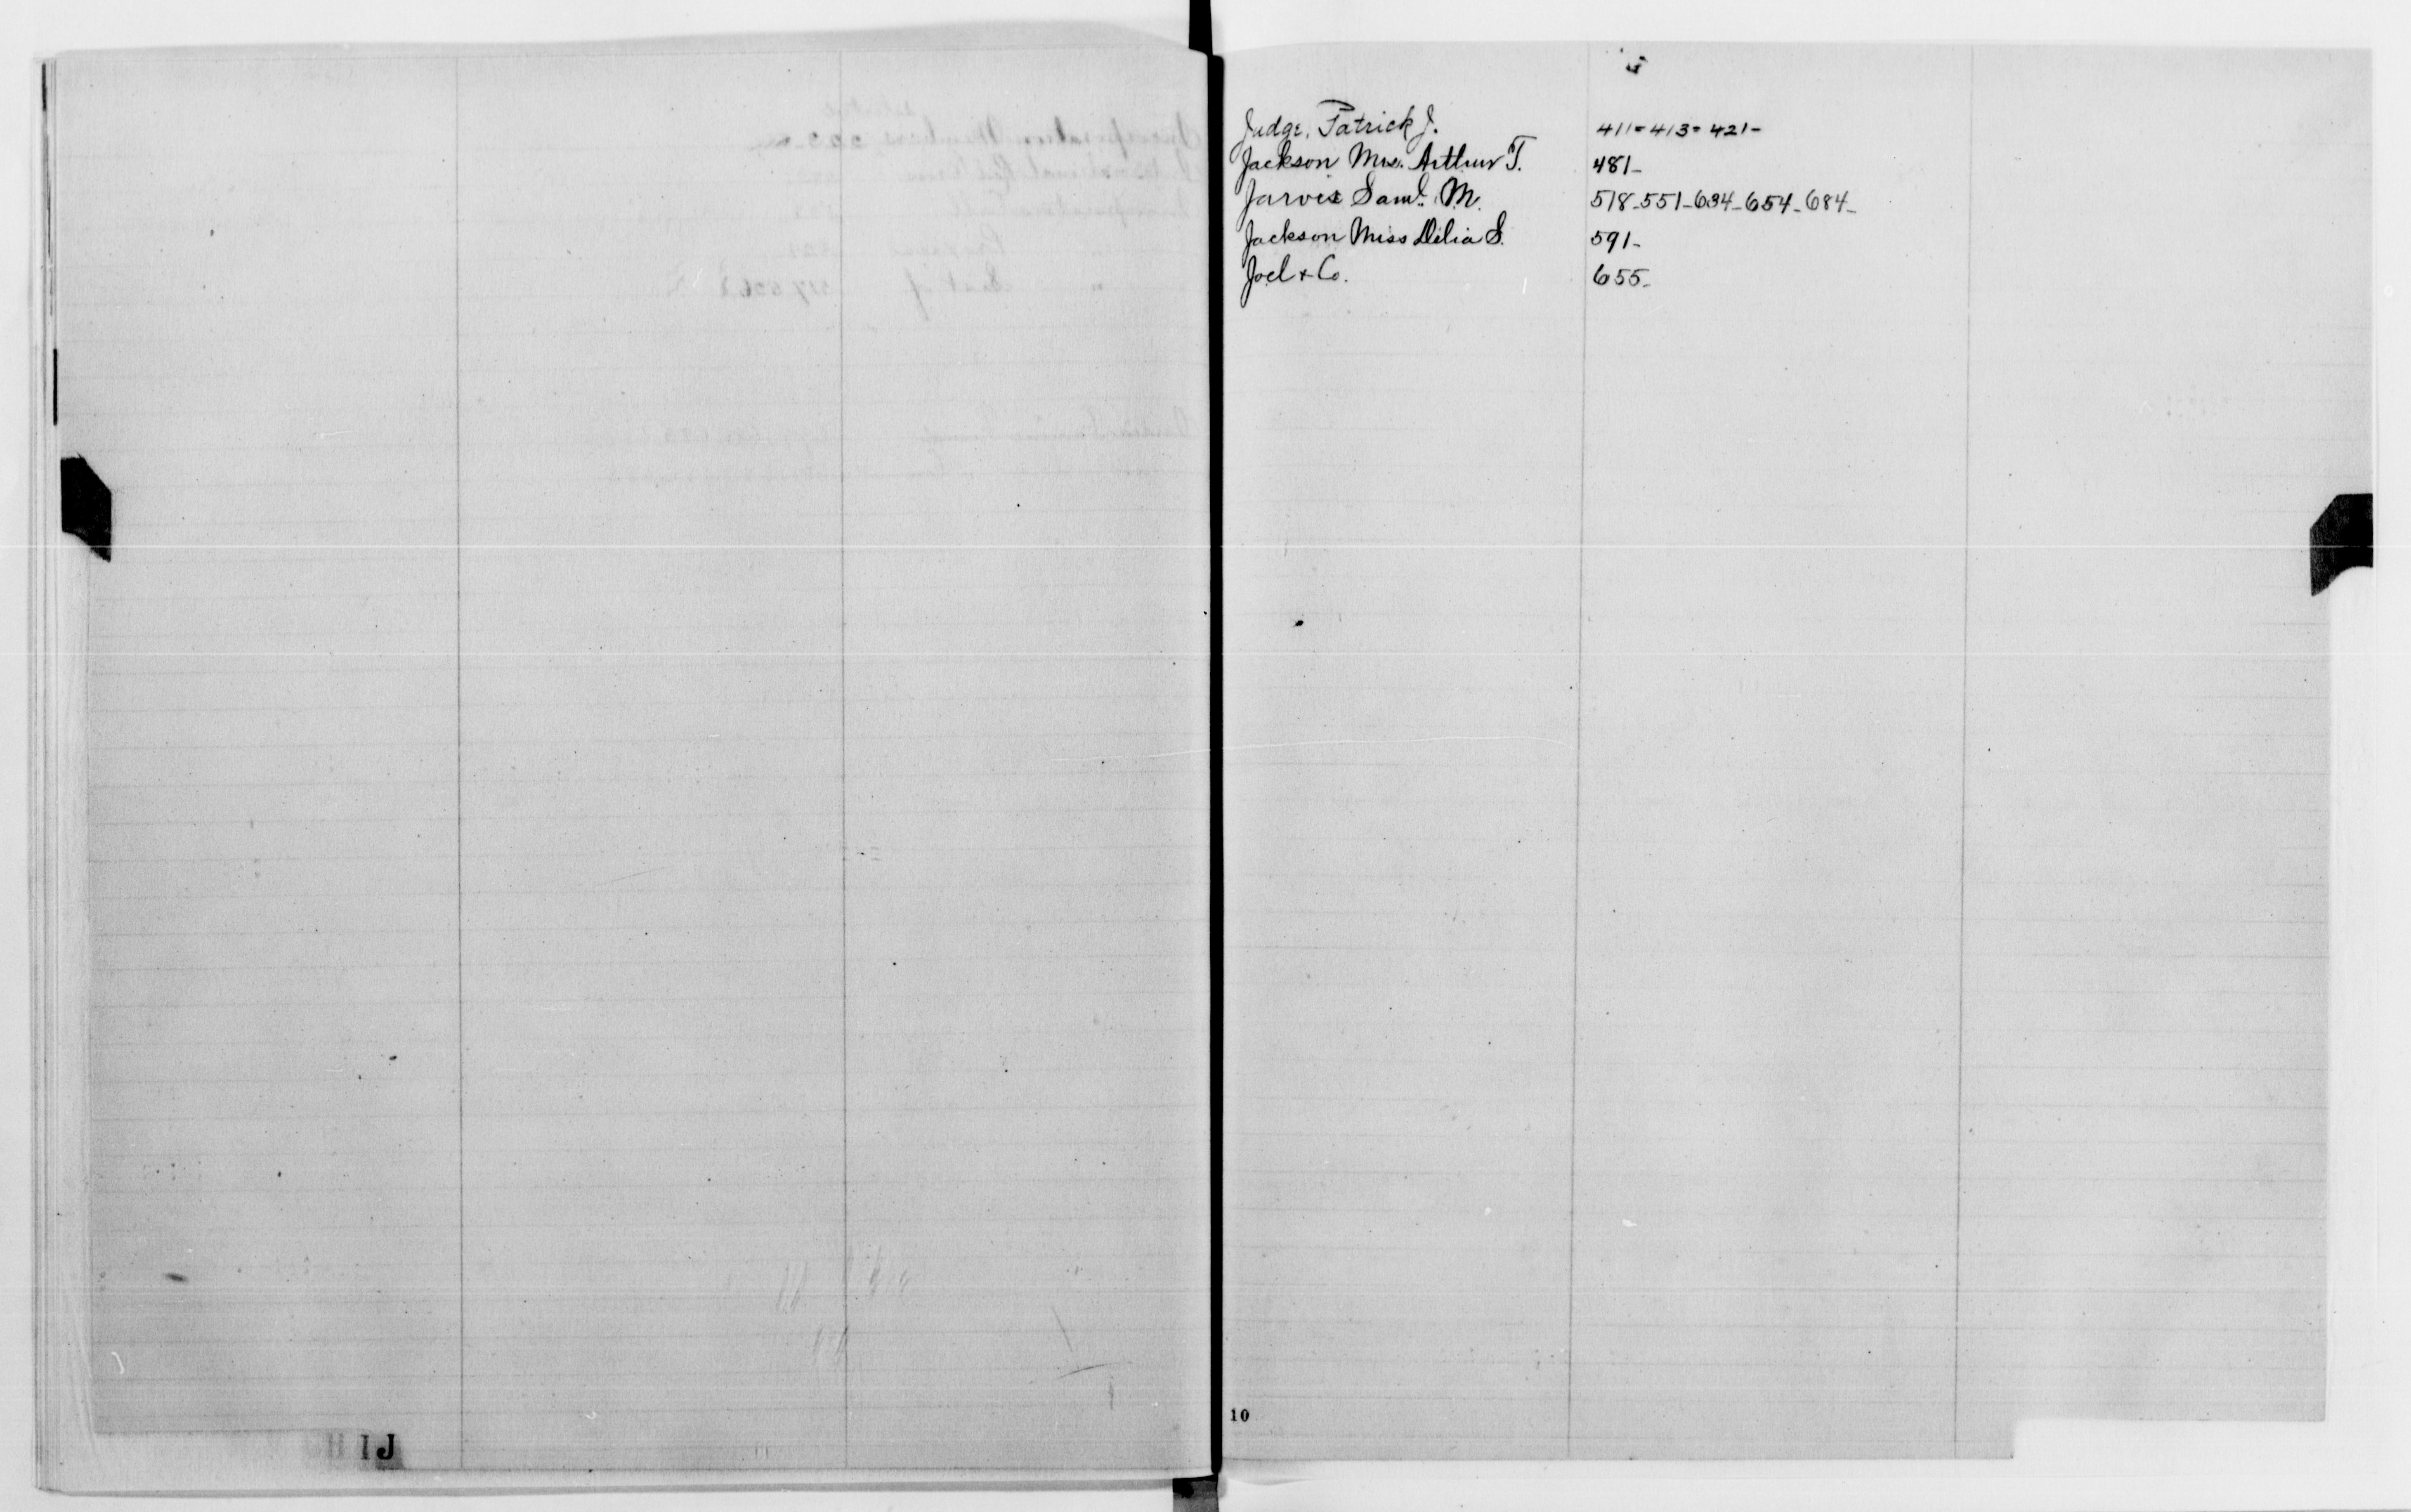 Judge, Patrick J. 411=413=421-
Jackson Mrs. Arthur T. 481-
Jarvis Saml. M. 518-551-634-654-684-
Jackson Miss Delia S. 591-
Joel & Co. 655-
10
H I J